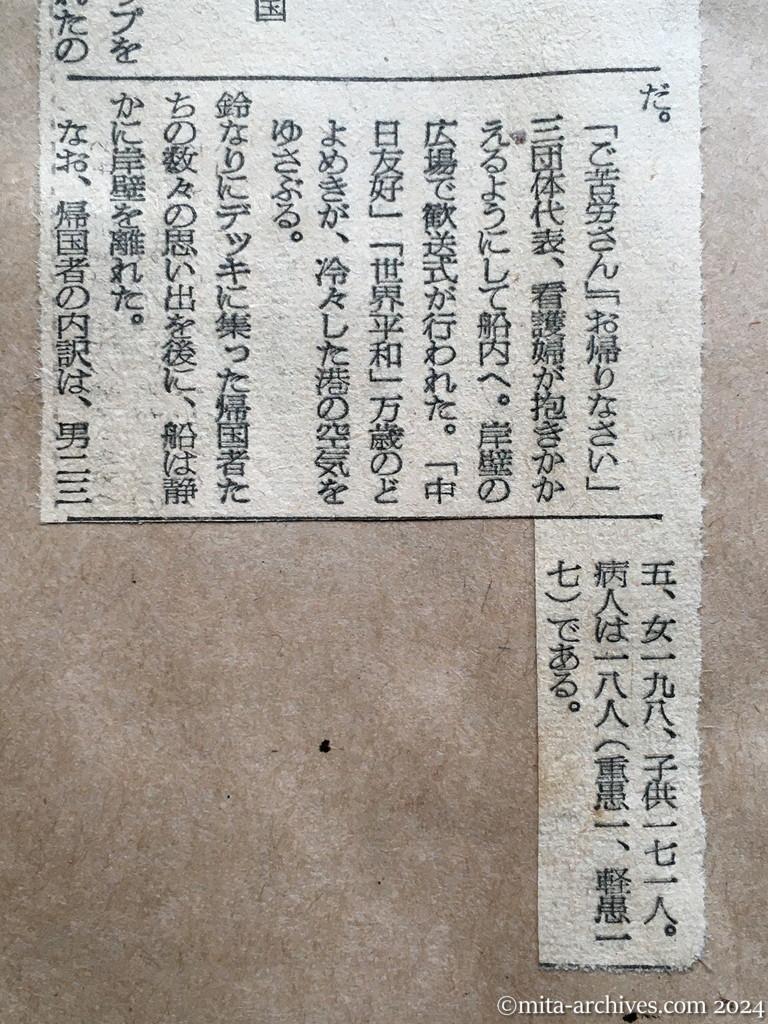 国
ップを
れたの
だ。
「ご苦労さん」「お帰りなさい」
三団体代表、看護婦が抱きかか
えるようにして船内へ。岸壁の
広場で歓送式が行われた。「中
日友好」「世界平和」万歳のど
よめきが、冷々した港の空気を
ゆさぶる。
鈴なりにデッキに集った帰国者た
ちの数々の思い出を後に、船は静
かに岸壁を離れた。
なお、帰国者の内訳は、男二三
五、女一九八、子供一七一人。
病人は一八人（重患一、軽患一
七）である。
©mita-archives.com 2024